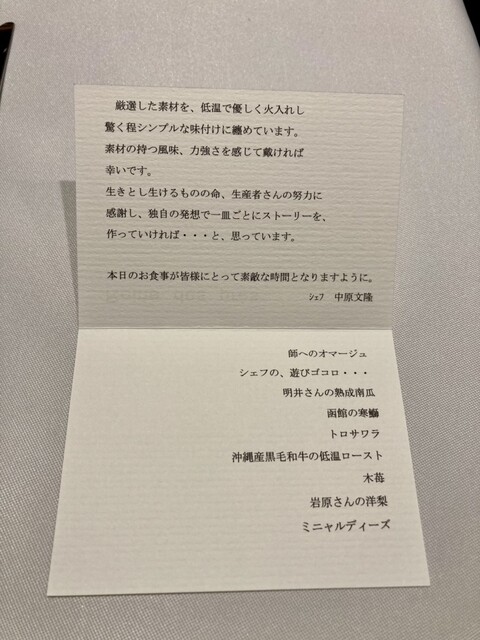 厳選した素材を、低温で優しく火入れし
驚く程シンプルな味付けに纏めています。
素材の持つ風味、力強さを感じて戴ければ
幸いです。
生きとし生けるものの命、生産者さんの努力に
感謝し、独自の発想で一皿ごとにストーリーを、
作っていければ・・・と、思っています。
本日のお食事が皆様にとって素敵な時間となりますように。
ｼｪﾌ 中原文隆
師へのオマージュ
シェフの、遊びゴコロ・・・
明井さんの熟成南瓜
函館の寒鰤
トロサワラ
沖縄産黒毛和牛の低温ロースト
木苺
岩原さんの洋梨
ミニャルディーズ